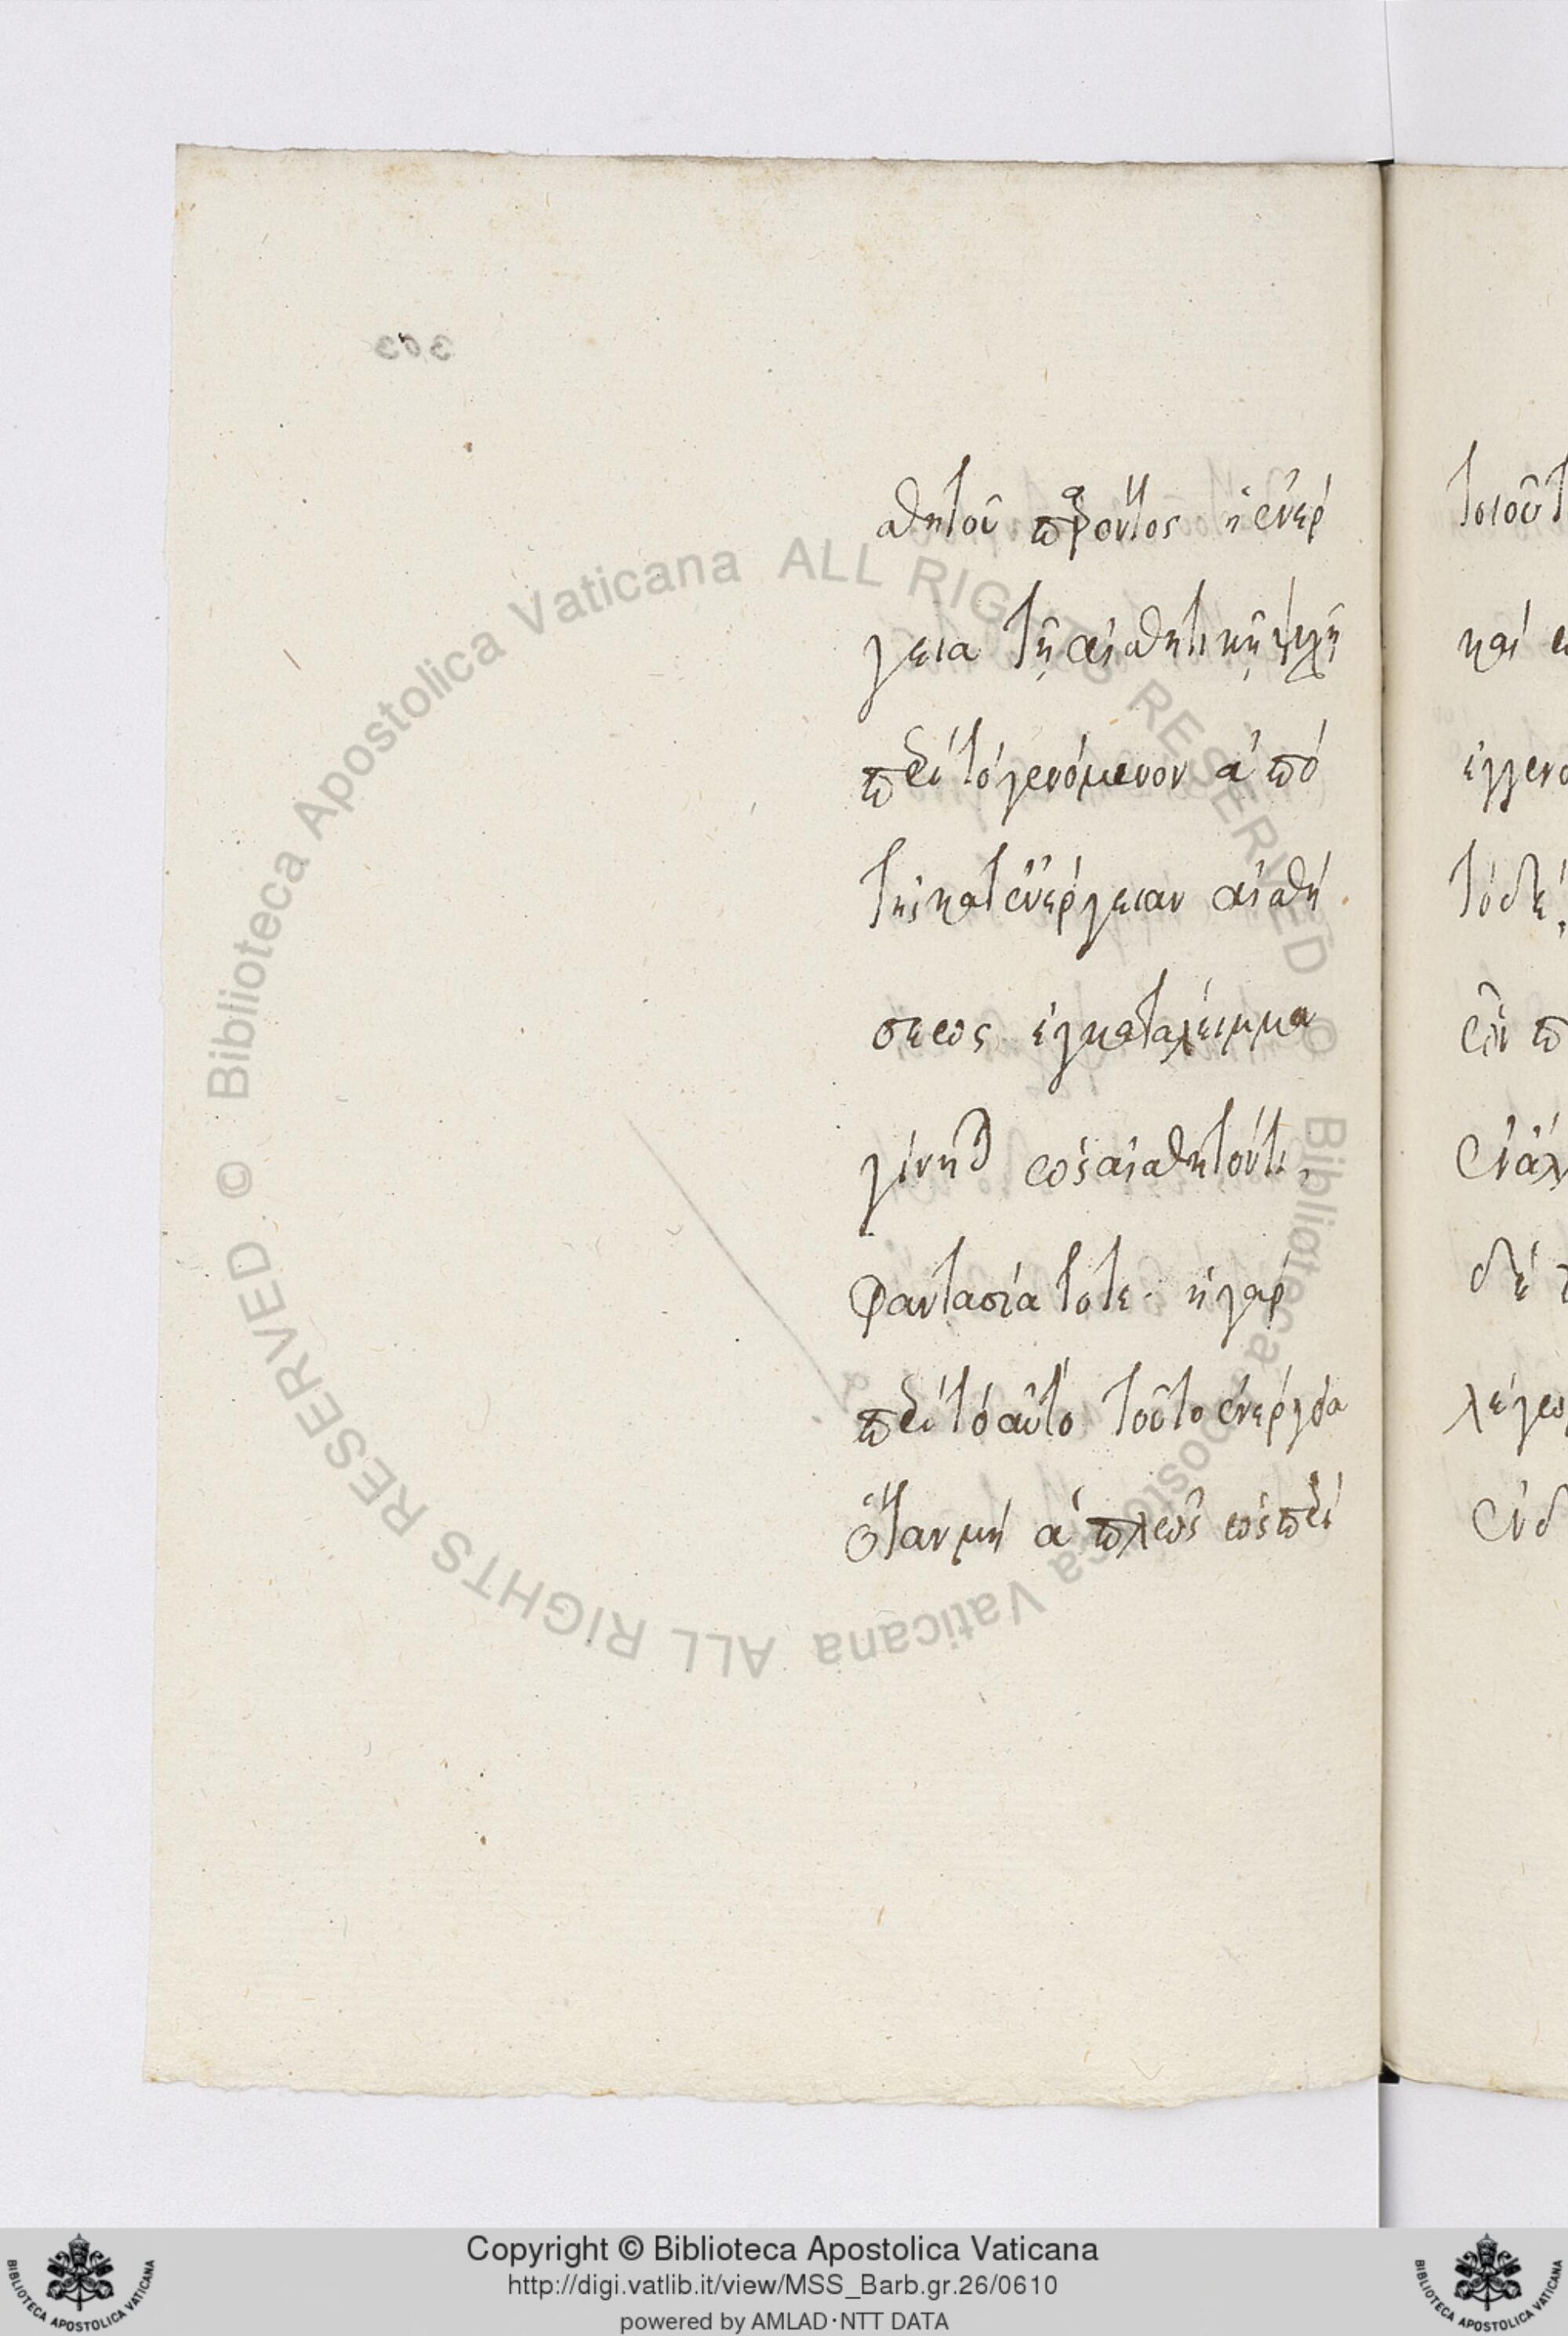 303
αθητοῦ παρόντος ἡ ἐνερ
γεια τῇ αἰσθητικῇ ψυχῇ
περὶ τὸ γενόμενον ἀπὸ
τῆς κατ ἐνέργειαν αἰσθή
σεως ἐγκατάλειμμα
γίνηται ὡς αἰσθητόν τι,
φαντασία τοτε. ἡ γαρ
περὶ τὸ αὐτὸ τοῦτο ἐνέργεια
ὅταν μὴ ἁπλῶς ὡς περὶ
τοιοῦτ
καὶ
ἐγγενο
τὸ δὲ
δὲ
λέγω
Biblioteca Apostolica Vaticana ALL RIGHTS RESERVED ©
Biblioteca Apostolica Vaticana ALL RIGHTS RESERVED ©
Copyright © Biblioteca Apostolica Vaticana
http://digi.vatlib.it/view/MSS_Barb.gr.26/0610
powered by AMLAD·NTT DATA
BIBLIOTECA APOSTOLICA VATICANA
BIBLIOTECA APOSTOLICA VATICANA